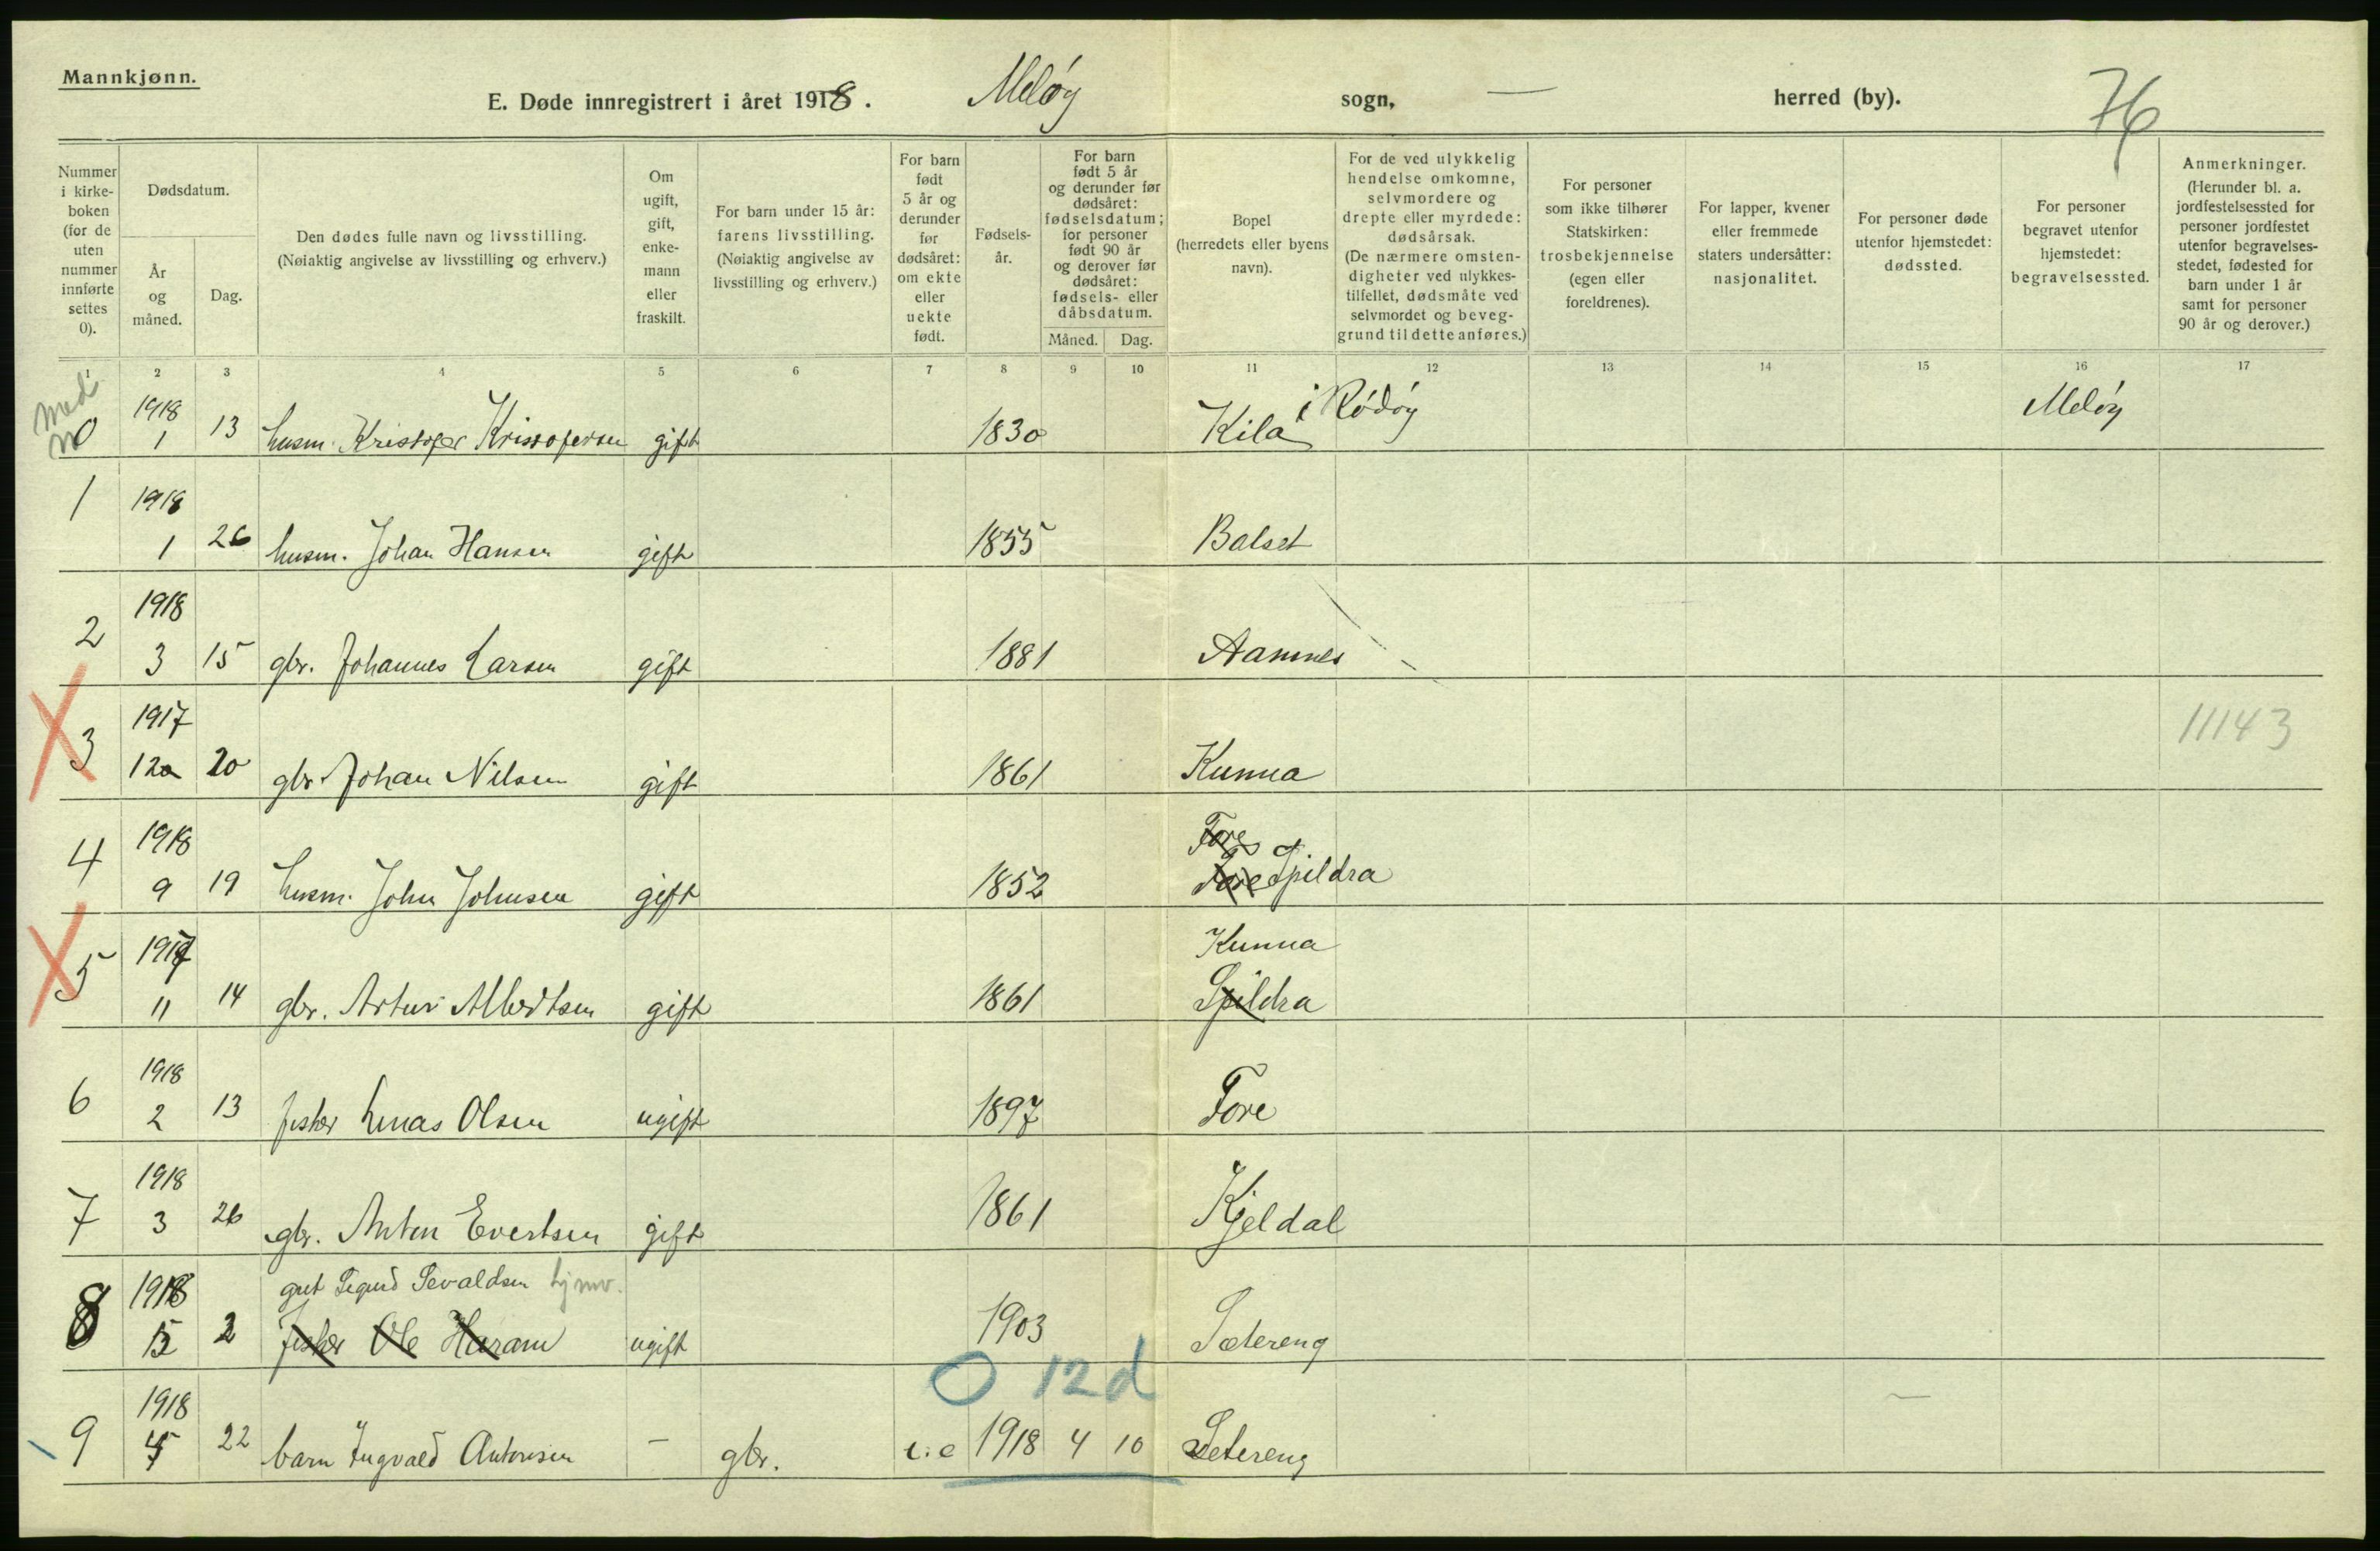 Mannkjønn.
E. Døde innregistrert i året 1918. Meløy sogn, — herred (by).
76
Nummer i kirke-boken (for de uten nummer innførte settes 0).
Dødsdatum.
År og måned.
Dag.
Den dødes fulle navn og livsstilling.
(Nøiaktig angivelse av livsstilling og erhverv.)
Om ugift, gift, enke-mann eller fraskilt.
For barn under 15 år: farens livsstilling.
(Nøiaktig angivelse av livsstilling og erhverv.)
For barn født 5 år og derunder før dødsåret: om ekte eller uekte født.
Fødsels-år.
For barn født 5 år og derunder før dødsåret: fødselsdatum; for personer født 90 år og derover før dødsåret: fødsels- eller dåbsdatum.
Måned. Dag.
Bopel (herredets eller byens navn).
For de ved ulykkelig hendelse omkomne, selvmordere og drepte eller myrdede: dødsårsak.
(De nærmere omsten-digheter ved ulykkes-tilfellet, dødsmåte ved selvmordet og beveg-grund til dette anføres.)
For personer som ikke tilhører Statskirken: trosbekjennelse (egen eller foreldrenes).
For lapper, kvener eller fremmede staters undersåtter: nasjonalitet.
For personer døde utenfor hjemstedet: dødssted.
For personer begravet utenfor hjemstedet: begravelsessted.
Anmerkninger.
(Herunder bl. a. jordfestelsessted for personer jordfestet utenfor begravelses-stedet, fødested for barn under 1 år samt for personer 90 år og derover.)
1 2 3 4 5 6 7 8 9 10 11 12 13 14 15 16 17
med
0 1918 1 13 husm. Kristofer Kristofersen gift 1830 Kila i Rødøy Meløy
1 1918 1 26 husm. Johan Hansen gift 1855 Balset
2 1918 3 15 gbr. Johannes Larsen gift 1881 Aamnes
3 1917 12 20 gbr. Johan Nilsen gift 1861 Kunna 11143
4 1918 9 19 husm. John Johnsen gift 1852 Fore Fore Spildra
5 1917 11 14 gbr. Artur Albertsen gift 1861 Kunna Spildra
6 1918 2 13 fisker Linas Olsen ugift 1897 Fore
7 1918 3 26 gbr. Anton Evertsen gift 1861 Kjeldal
gut Sigurd Sevaldsen hjmv.
8 1918 2 fisker Ole Haram ugift 1903 Setereng
0 12 d
9 1918 22 barn Ingvald Antonsen — gbr. e 1918 4 10 Setereng